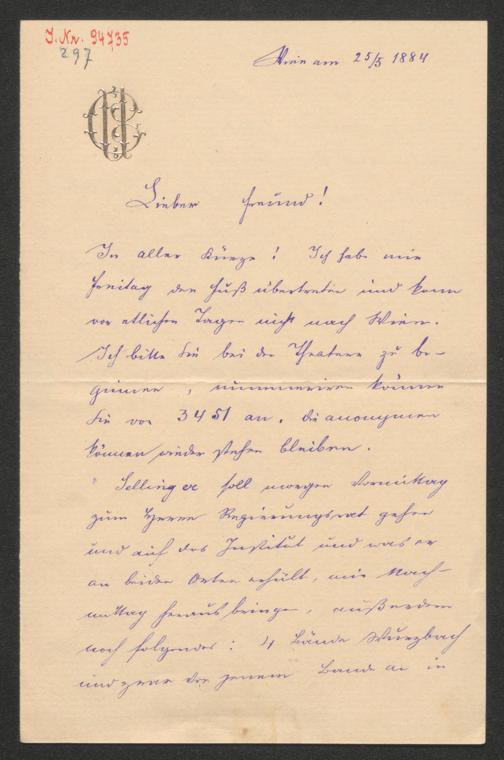 J. Nr. 94735
297
Wien am 25/5 1884
Lieber Freund!
In aller Kürze! Ich habe mir
Freitag den Fuß übertreten und kann
vor etlichen Tagen nicht nach Wien.
Ich bitte Sie bei den Theatern zu be-
ginnen, nummeriren können
Sie von 3451 an. Die anonymen
können wieder stehen bleiben.
Sellinger soll morgen Vormittag
zum Herrn Regierungsrat gehen
und auf das Institut und was er
an beiden Orten erhält, mir Nach-
mittag herausbringen, außerdem
noch folgendes: 4 Bände Wurzbach
und zwar von jenem Bande an in